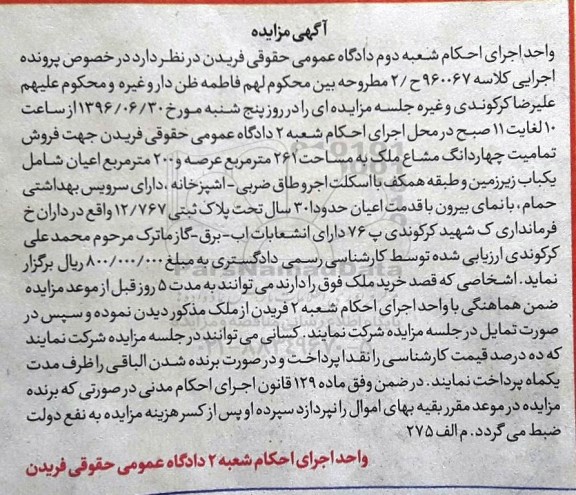 آگهی مزایده
واحد اجرای احکام شعبه دوم دادگاه عمومی حقوقی فریدن در نظر دارد در خصوص پرونده
اجرایی کلاسه ۹۶۰۰۶۷ح/۲ مطروحه بین محکوم لهم فاطمه ظن دار و غیره و محکوم علیهم
علیرضا کرکوندی و غیره جلسه مزایده ای را در روز پنج شنبه مورخ ۱۳۹۶/۰۶/۳۰ از ساعت
۱۰ لغایت ۱۱ صبح در محل اجرای احکام شعبه ۲ دادگاه عمومی حقوقی فریدن جهت فروش
تمامیت چهاردانگ مشاع ملک به مساحت ۲۶۱ مترمربع عرصه و ۲۰۰ مترمربع اعیان شامل
یکباب زیرزمین و طبقه همکف با اسکلت اجر و طاق ضربی-اشپزخانه ، دارای سرویس بهداشتی
حمام ، با نمای بیرون با قدمت اعیان حدودا ۳۰ سال تحت پلاک ثبتی ۱۲/۷۶۷ واقع در داران خ
فرمانداری ک شهید کرکوندی پ ۷۶ دارای انشعابات اب-برق-گاز ماترک مرحوم محمدعلی
کرکوندی ارزیابی شده توسط کارشناسی رسمی دادگستری به مبلغ ۸۰۰/۰۰۰/۰۰۰ ریال برگزار
نماید . اشخاصی که قصد خرید ملک فوق را دارند می توانند به مدت ۵ روز قبل از موعد مزایده
ضمن هماهنگی با واحد اجرای احکام شعبه ۲ فریدن از ملک مذکور دیدن نموده و سپس در
صورت تمایل در جلسه مزایده شرکت نمایند. کسانی می توانند در جلسه مزایده شرکت نمایند
که ده درصد قیمت کارشناسی را نقدا پرداخت و در صورت برنده شدن الباقی را ظرف مدت
یکماه پرداخت نمایند . در ضمن وفق ماده ۱۲۹ قانون اجرای احکام مدنی در صورتی که برنده
مزایده در موعد مقرر بقیه بهای اموال را نپردازد سپرده او پس از کسر هزینه مزایده به نفع دولت
ضبط می گردد . م الف ۲۷۵
واحد اجرای احکام شعبه ۲ دادگاه عمومی حقوقی فریدن